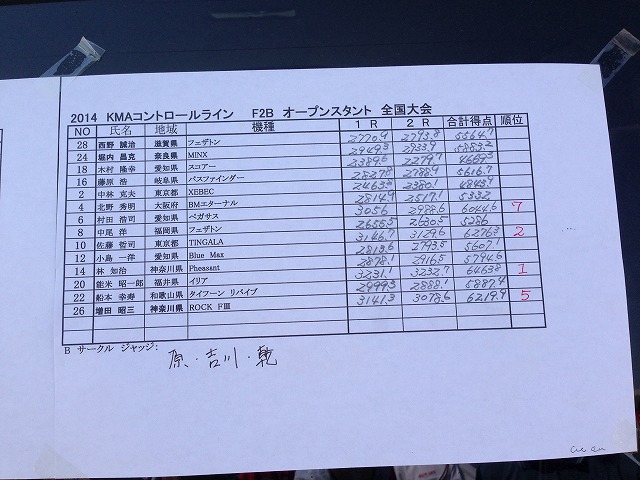 2014 KMAコントロールライン F2B オープンスタント 全国大会
NO 氏名 地域 機種 1 R 2 R 合計得点 順位
28 西野 誠治 滋賀県 フェザトン 2770.9 2793.8 5564.7
24 堀内 昌克 奈良県 MINX 2949.3 2933.9 5883.2
18 木村 隆幸 愛知県 スコアー 2389.6 2279.7 4669.3
16 藤原 浩 岐阜県 パスファインダー 2827.8 2788.9 5616.7
2 中林 克夫 東京都 XEBEC 2463.3 2380.1 4843.4
4 北野 秀明 大阪府 BMエターナル 2814.9 2517.1 5332
6 村田 浩司 愛知県 ペガサス 3056 2988.6 6044.6 7
8 中尾 洋 福岡県 フェザトン 2655.5 2630.5 5286
10 佐藤 哲司 東京都 TINGALA 3146.7 3129.6 6276.3 2
12 小島 一洋 愛知県 Blue Max 2813.6 2793.5 5607.1
14 林 知治 神奈川県 Pheasant 2878.1 2916.5 5794.6
20 能米 昭一郎 福井県 イリア 3231.1 3232.7 6463.8 1
22 船本 幸寿 和歌山県 タイフーン リバイブ 2999.3 2888.1 5887.4
26 増田 昭三 神奈川県 ROCK FⅢ 3141.3 3078.6 6219.9 5
B サークル ジャッジ:
原・吉川・乾